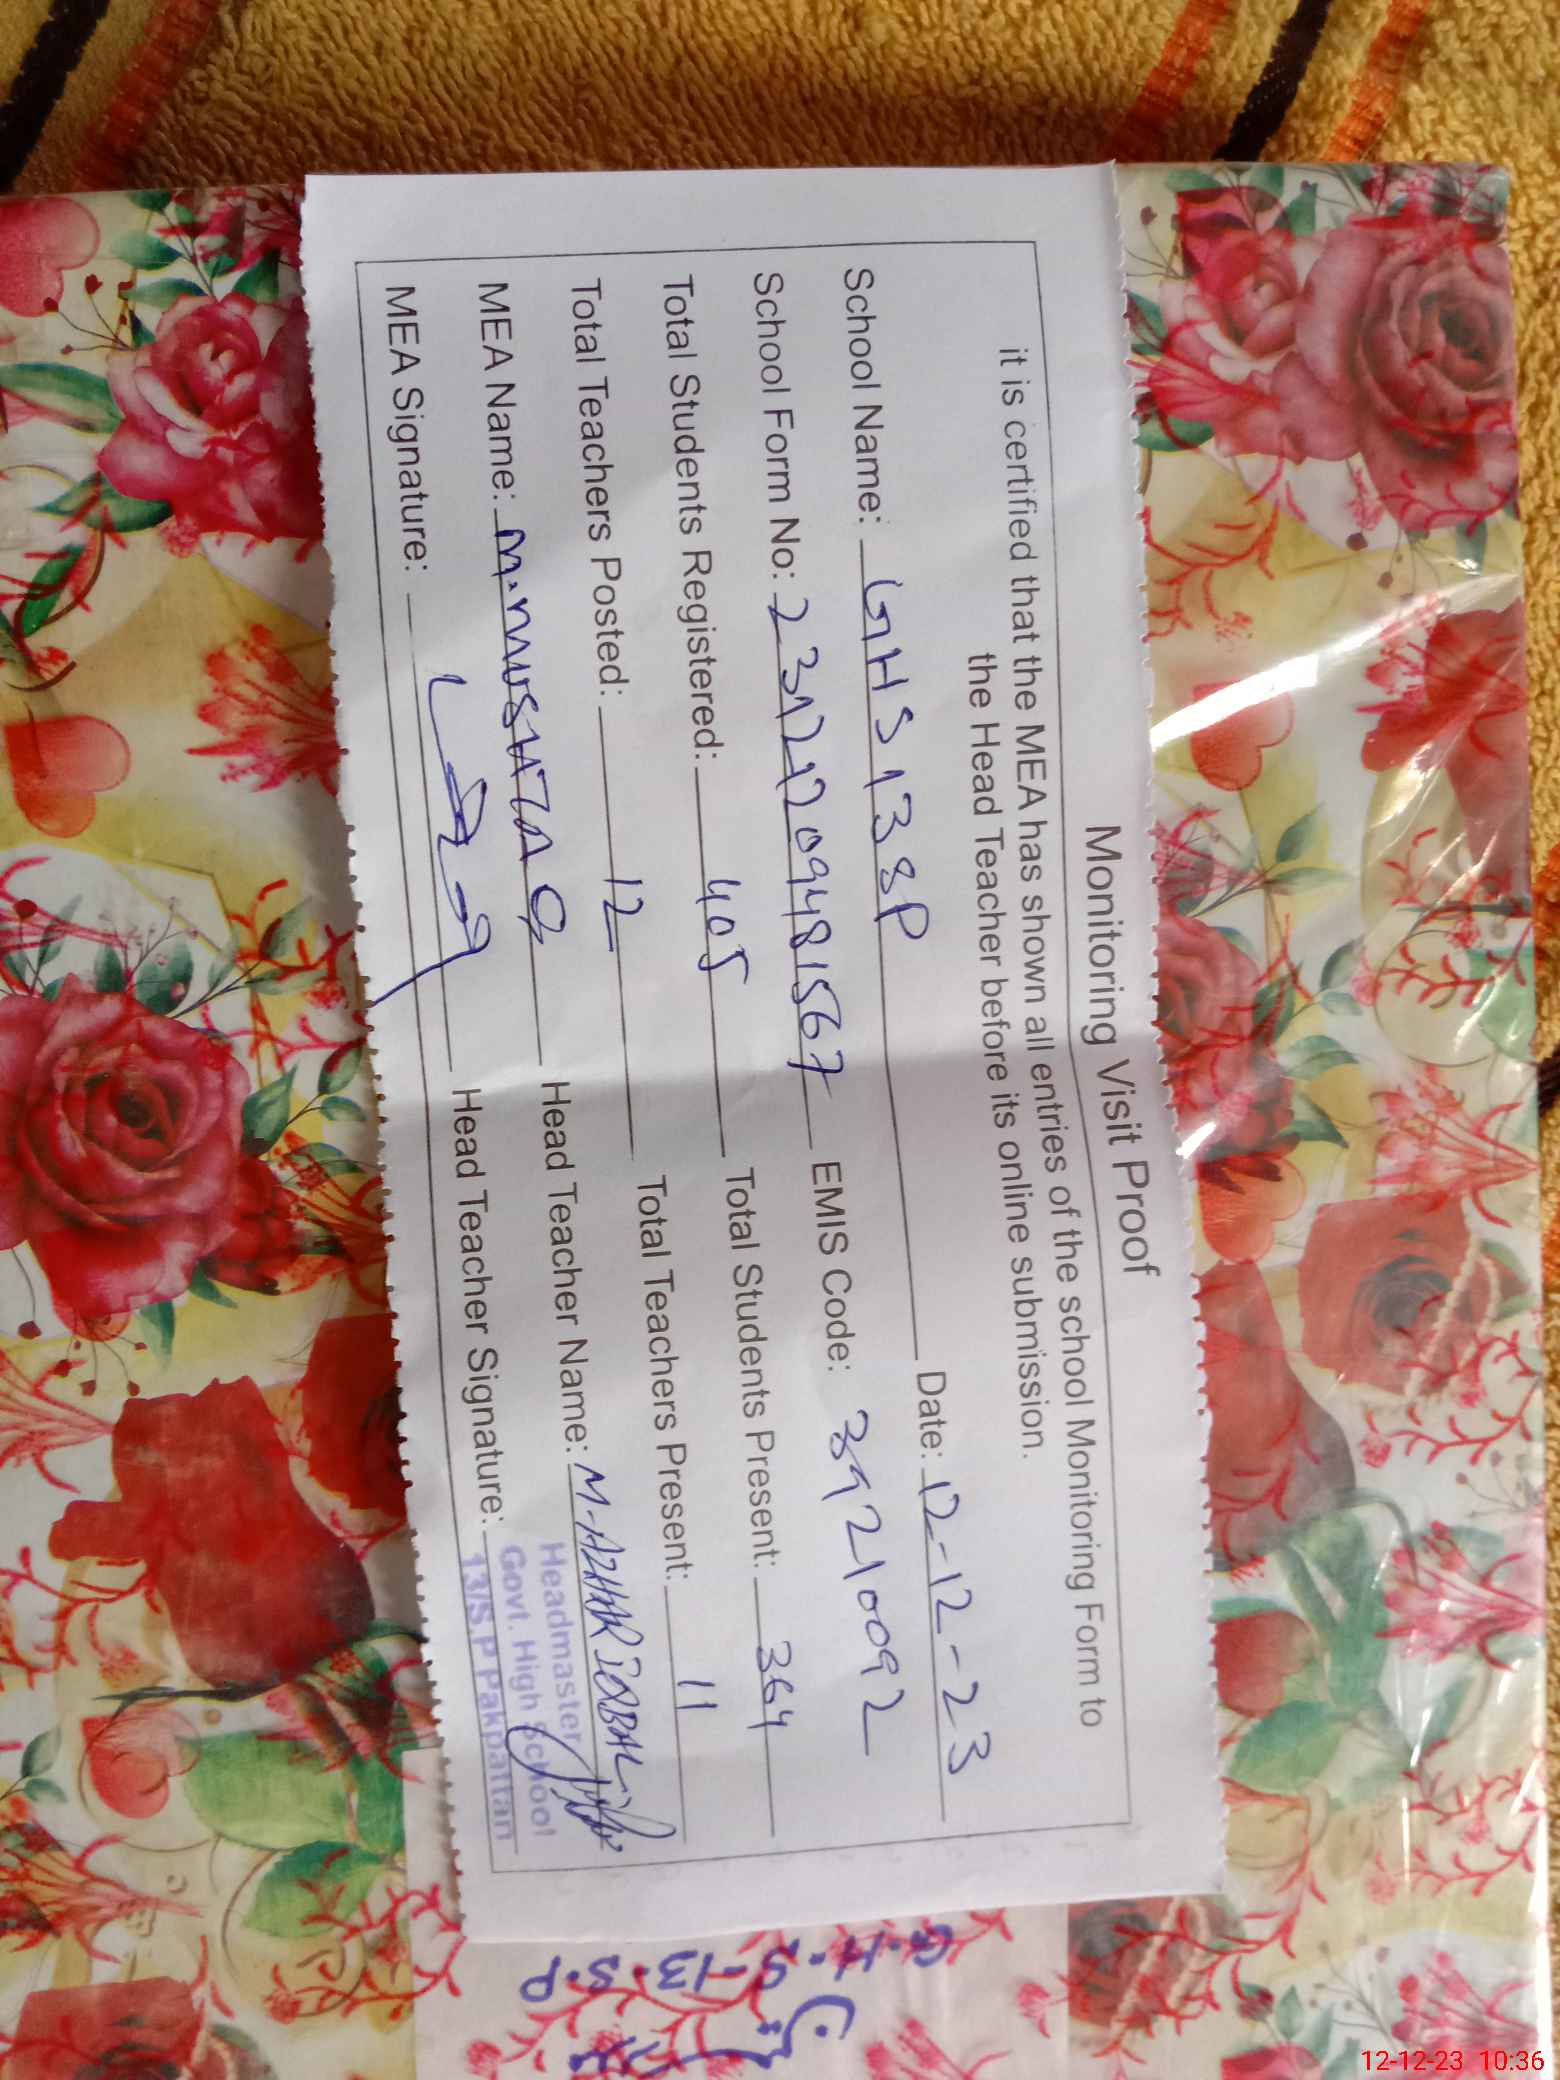 Monitoring Visit Proof
it is certified that the MEA has shown all entries of the school Monitoring Form to
the Head Teacher before its online submission.
School Name: GHS 13 SP Date: 12-12-23
School Form No: 23121209481567 EMIS Code: 39210092
Total Students Registered: 405 Total Students Present: 364
Total Teachers Posted: 12 Total Teachers Present: 11
MEA Name: Head Teacher Name: M. AZHAR IQBAL
MEA Signature: Head Teacher Signature:
Headmaster
Govt. High School
13/S.P Pakpattan
G.H.S-13.S.P
12-12-23 10:36